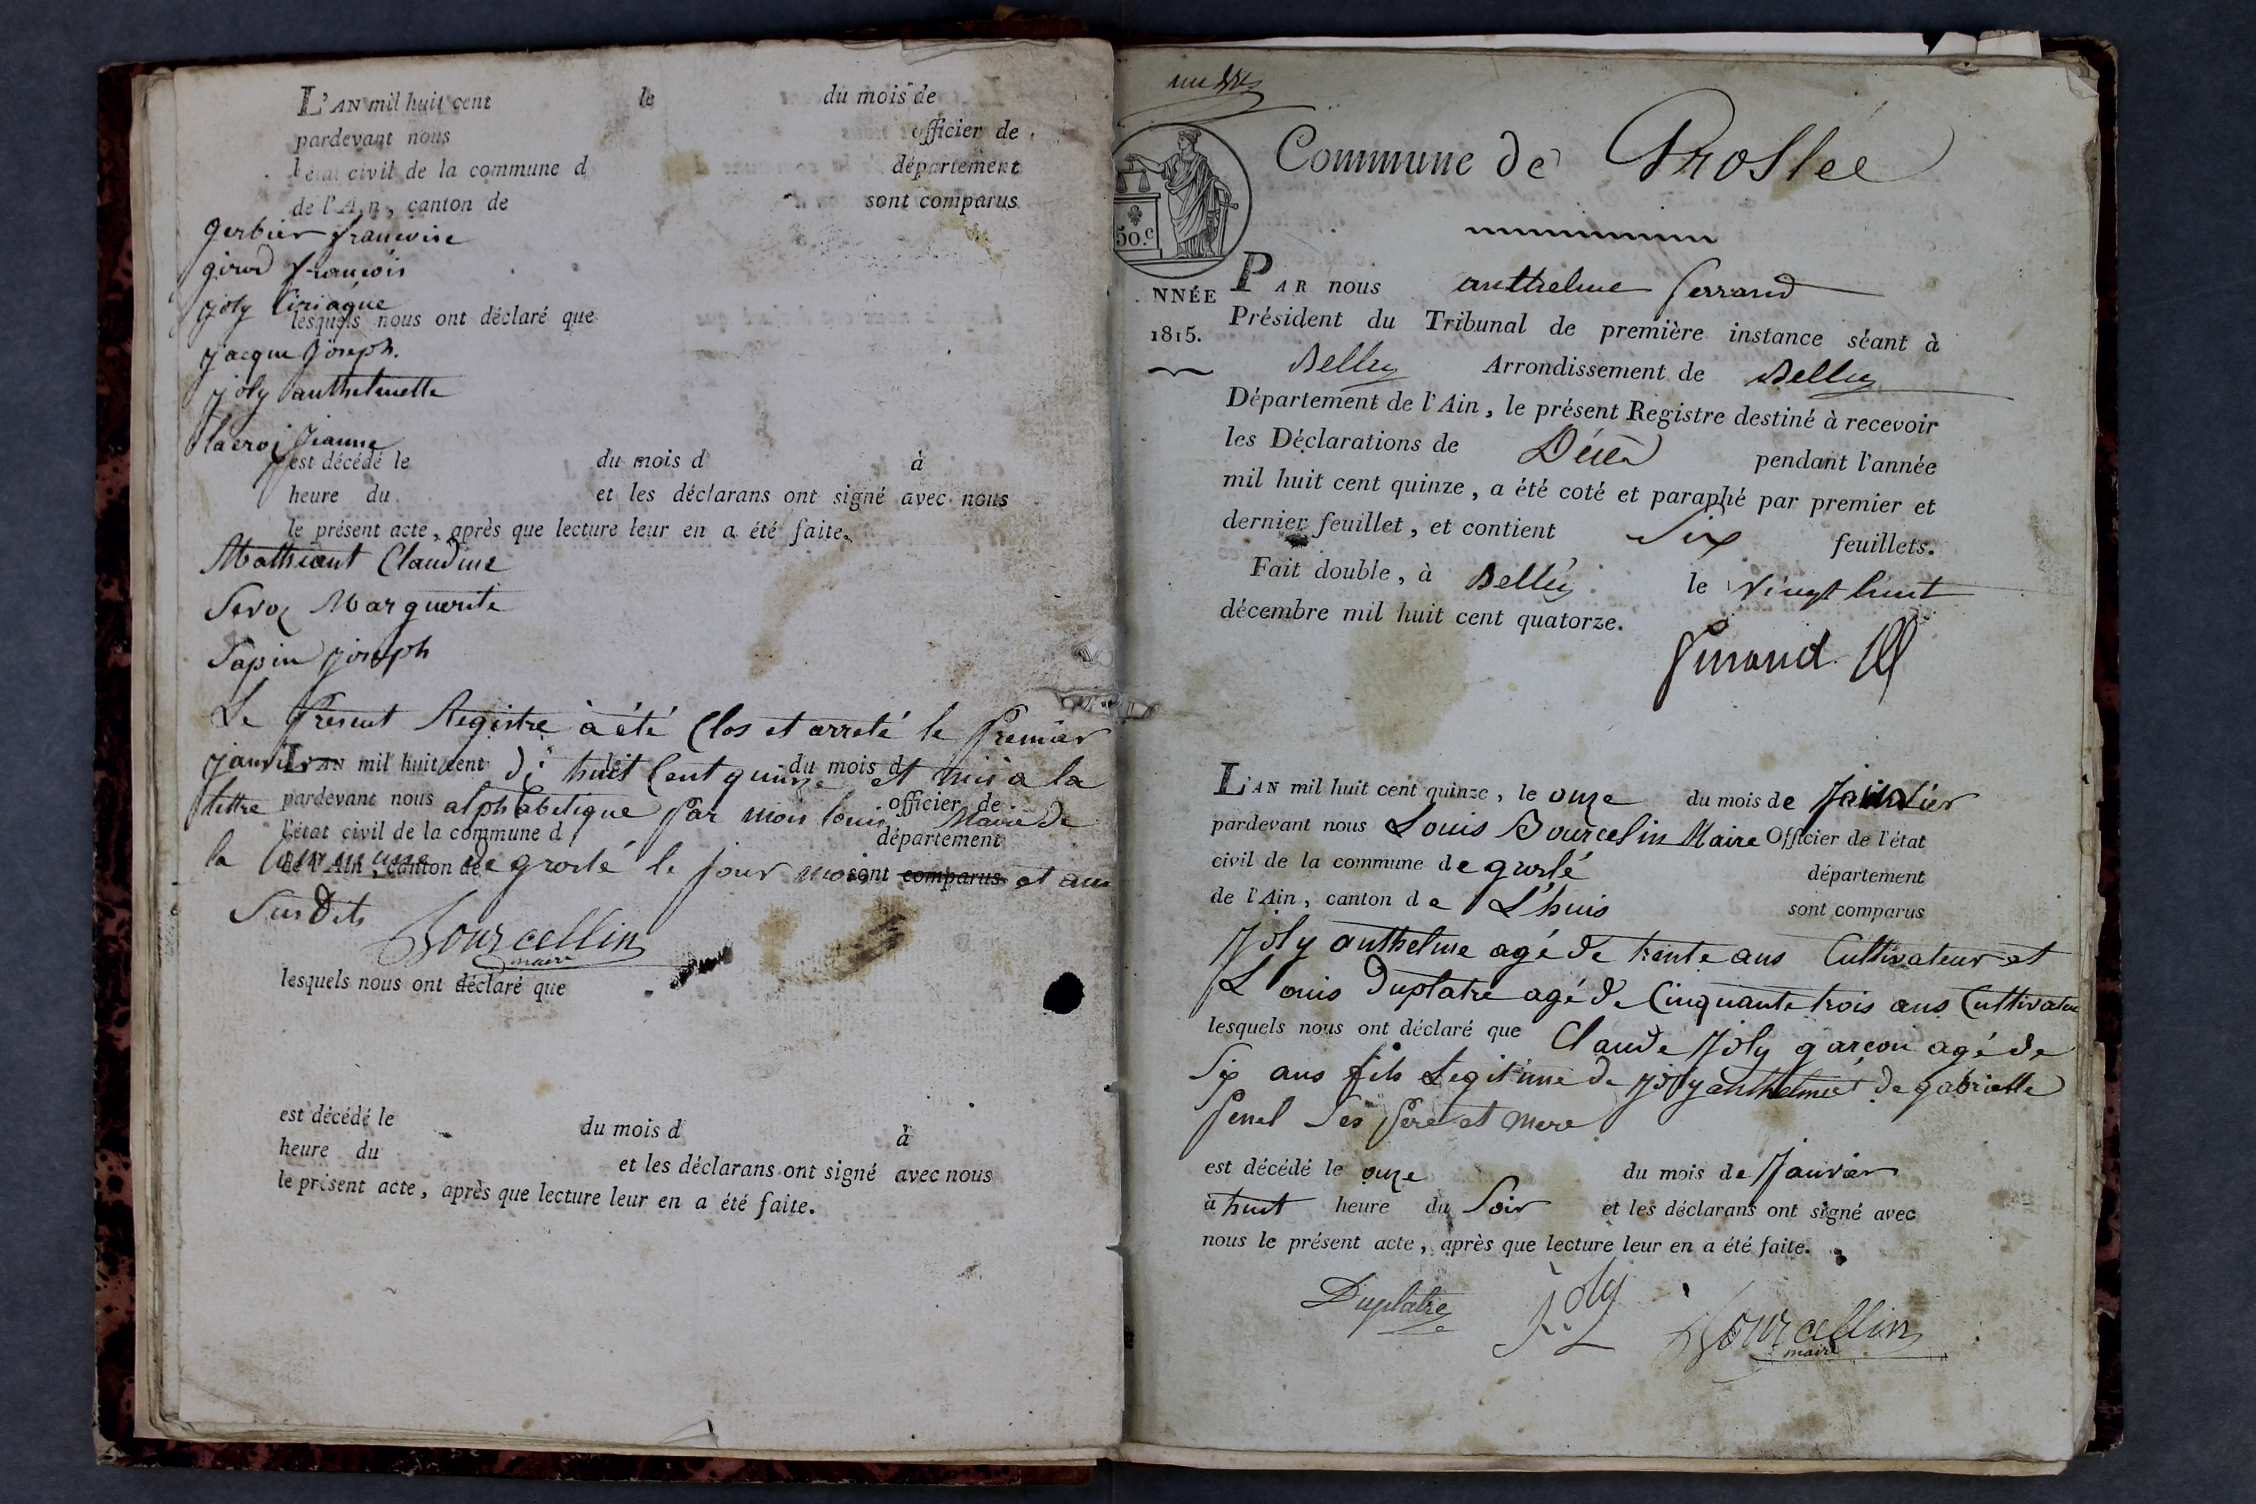 L'AN mil huit cent le du mois de
pardevant nous officier de
l'état civil de la commune d département
de l'Ain, canton de sont comparus
gerbier francoise
girod francois
joly Ciriaque
lesquels nous ont déclaré que
jacque joseph.
joly anthelmette
lacroi jeanne
est décédé le du mois d à
heure du et les déclarans ont signé avec nous
le présent acte, après que lecture leur en a été faite.
Claudine
Marguerite
Sapin joseph
Le present Registre à été Clos et arreté le premier
janvier L'AN mil huit cent di huit Cent quinze le du mois d et mis a la
lettre pardevant nous alphabetique par moi louis officier de Maire de
l'état civil de la commune d département
la Commune de l'Ain, canton de de groslé le jour mois sont comparus et an
Sus dits
Bourcellin
maire
lesquels nous ont déclaré que
est décédé le du mois d à
heure du et les déclarans ont signé avec nous
le présent acte, après que lecture leur en a été faite.
Commune de Groslée
50.c
NNÉE
1815.
PAR nous anthelme
Président du Tribunal de première instance séant à
Belley Arrondissement de Belley
Département de l'Ain, le présent Registre destiné à recevoir
les Déclarations de Décès pendant l'année
mil huit cent quinze, a été coté et paraphé par premier et
dernier feuillet, et contient Six feuillets.
Fait double, à Belley le vingt huit
décembre mil huit cent quatorze.
L'AN mil huit cent quinze, le onze du mois de Janvier
pardevant nous Louis Bourcelin Maire Officier de l'état
civil de la commune de groslé département
de l'Ain, canton de L'huis sont comparus
Joly anthelme agé de trente ans Cultivateur et
Louis Duplatre agé de Cinquante trois ans Cultivateu
lesquels nous ont déclaré que Claude Joly garcon agé de
Six ans fils Legitime de joly anthelme et de gabrielle
Penel Ses pere et mere
est décédé le onze du mois de Janvier
à huit heure du Soir et les déclarans ont signé avec
nous le présent acte, après que lecture leur en a été faite.
Duplatre Joly Bourcellin
maire